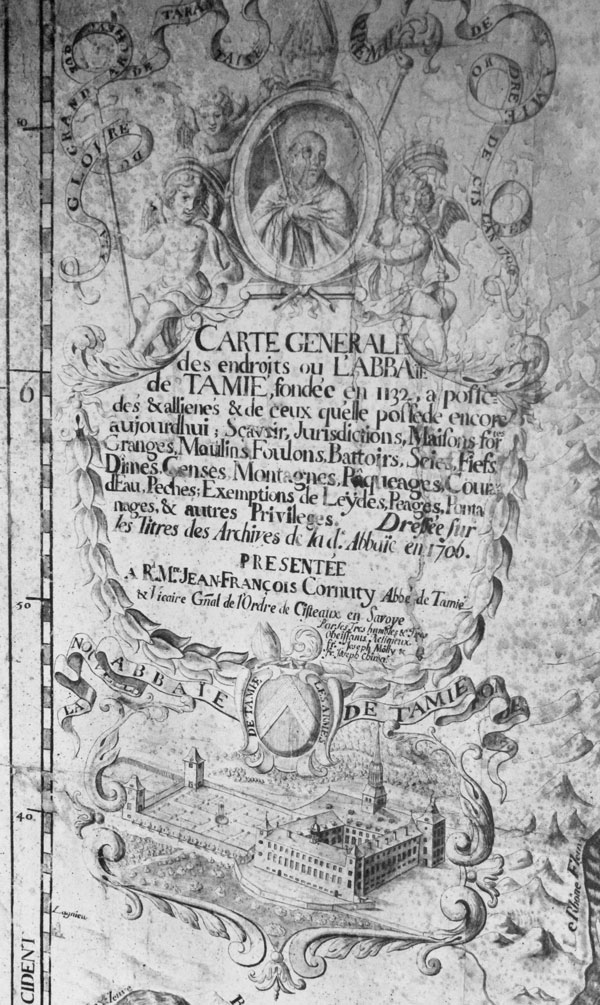 A LA GLOIRE DU GRAND
DE TARAN TAISE
DE TAMIE
ORDRE DE CIS
CARTE GENERALE
des endroits ou L'ABBAÏE
de TAMIE, fondée en 1132, a posse-
des & allienés & de ceux quelle possede encore
aujourdhui; Sçavoir, Jurisdictions, Maisons for
Granges, Moulins, Foulons, Battoirs, Scies, Fiefs
Dimes, Censes, Montagnes, Pâqueages, Cour
d'Eau, Peches; Exemptions de Leydes, Peages, Ponta
nages, & autres Privileges. Dressée sur
les Titres des Archives de lad. Abbaïe en 1706.
PRESENTÉE
A R. Mre. JEAN-FRANÇOIS Cornuty Abbé de Tamïe
& Vicaire Gñal de l'Ordre de Cisteaux en Savoye
Par ses Tres humbles & Tres
Obeissants Religieux
fr. Joseph
fr. Joseph
LA NOU ABBAÏE DE TAMIE
DE TAMIE
80
6
50
40
Lagnieu
le Rhône Fleuve
CIDENT